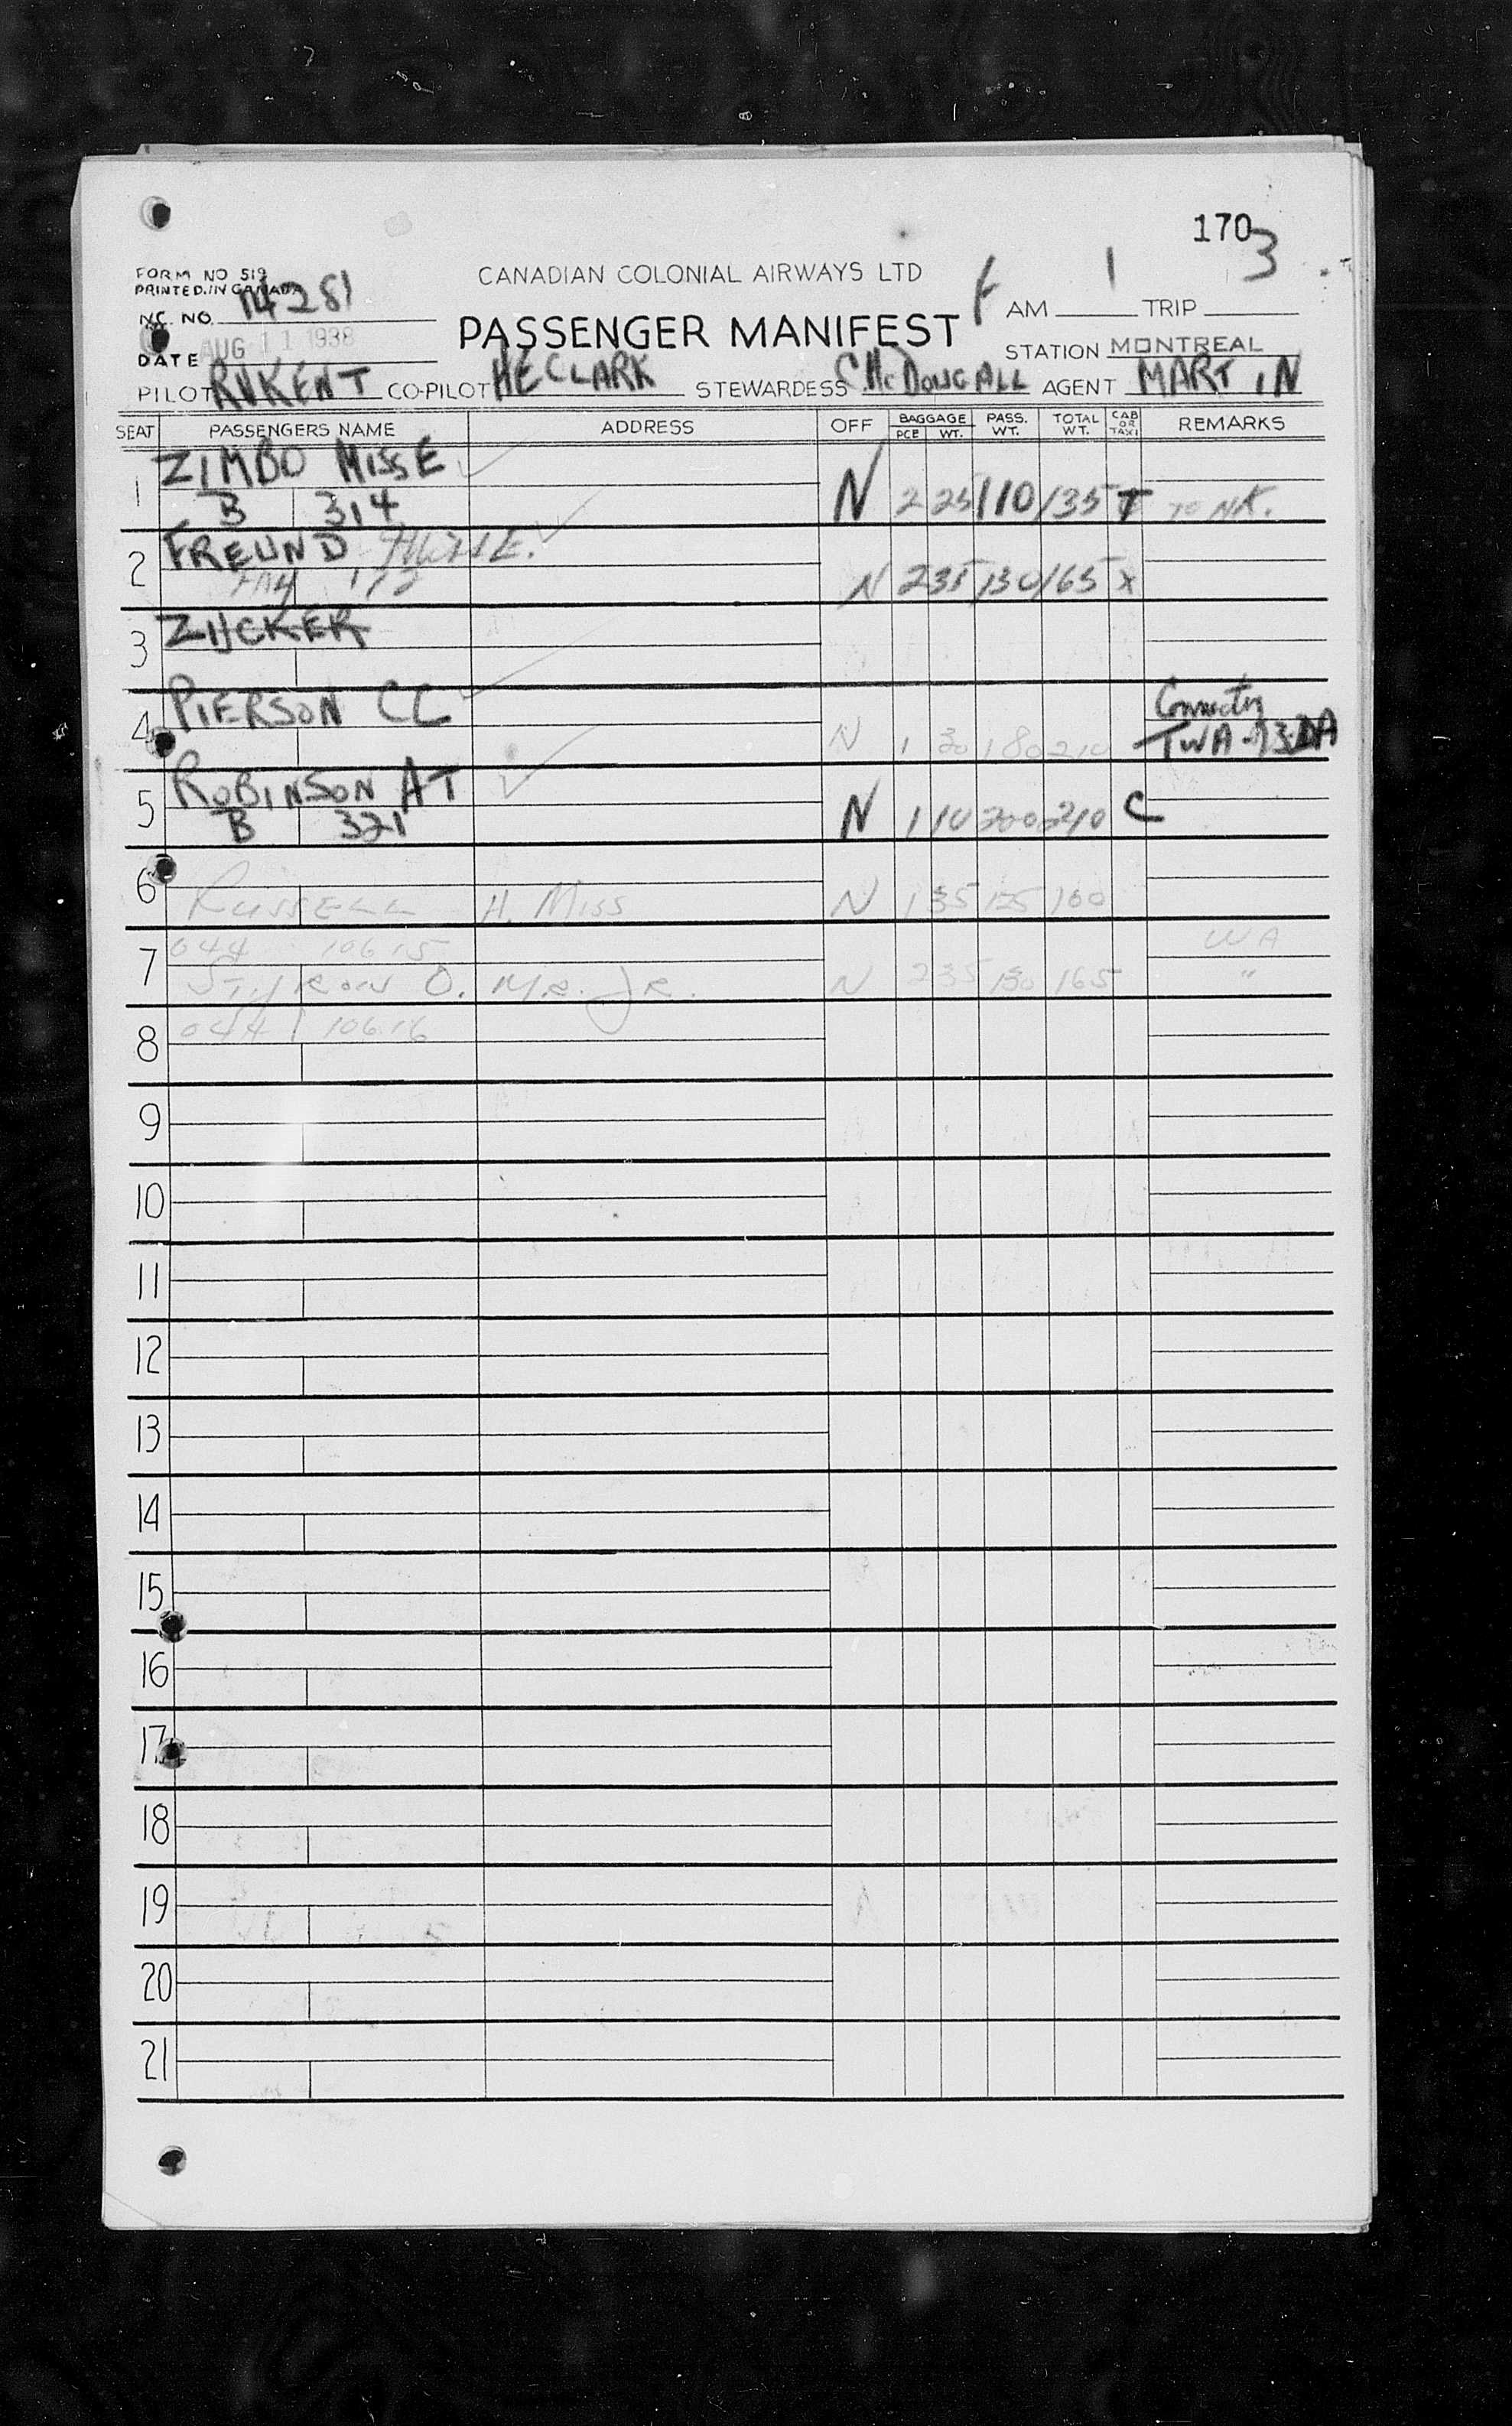 170
3
FORM NO 519
PRINTED IN CANADA
CANADIAN COLONIAL AIRWAYS LTD
NC. NO. 14281
PASSENGER MANIFEST
AM 1 TRIP
DATE AUG 11 1938
STATION MONTREAL
PILOT RVKENT CO-PILOT HECLARK STEWARDESS C McDOUGALL AGENT MARTIN
SEAT PASSENGERS NAME ADDRESS OFF BAGGAGE PCE WT. PASS. WT. TOTAL WT. CAB OR TAXI REMARKS
1 ZIMBO MISS E
B 314 N 2 25 110 135 T TO NK.
2 FREUND
112 N 2 35 130 165 X
3 ZUCKER
4 PIERSON CC
N 1 30 180 210 TWA
5 ROBINSON AT
B 321 N 1 10 200 210 C
6
RUSSELL H. MISS N 1 35 125 160
7 044 10615 WA
STYRON O. MR. JR. N 2 35 130 165 "
8 044 10616
9
10
11
12
13
14
15
16
17
18
19
20
21